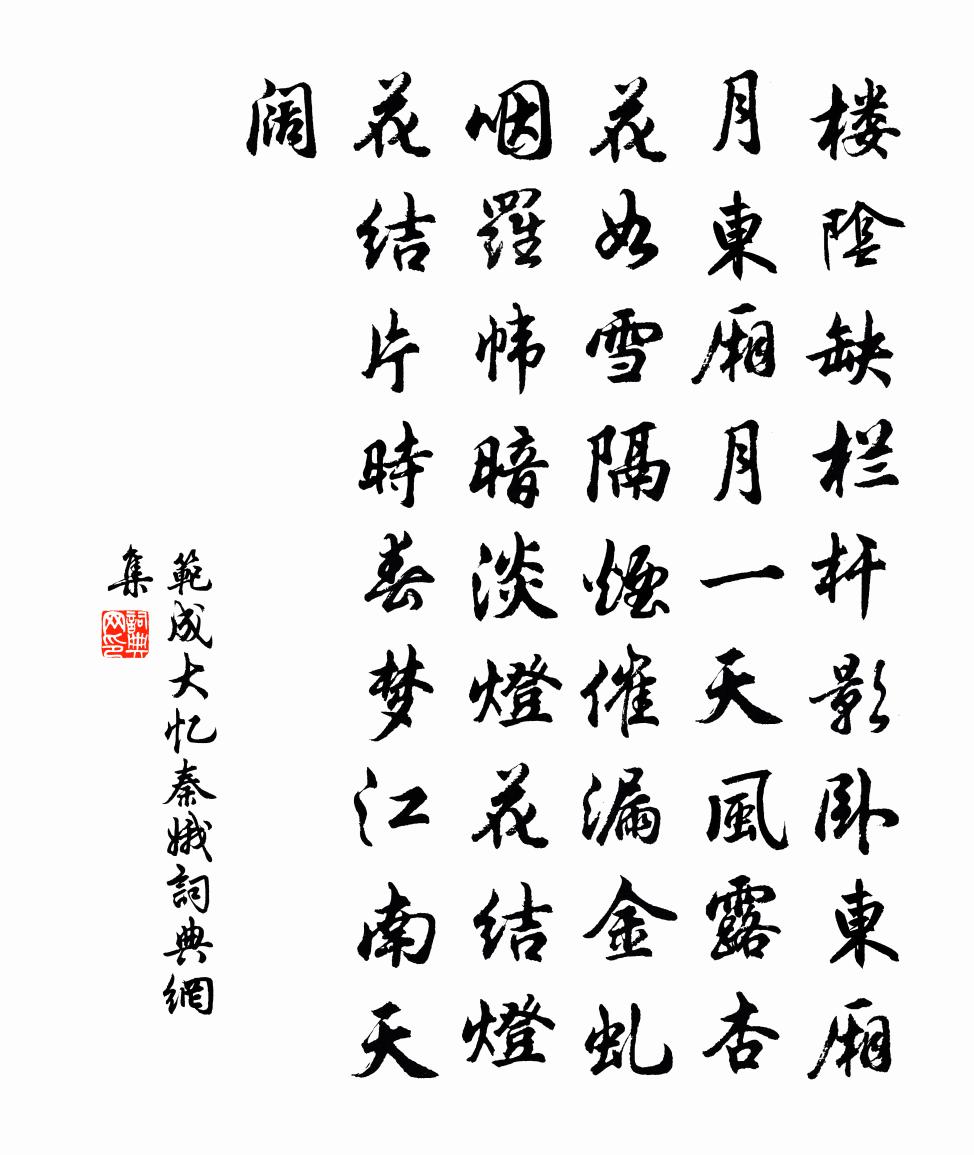 楼陰缺栏杆影卧東厢
月東厢月一天風露杏
花如雪隔煙催漏金虬
咽羅帏暗淡燈花结燈
花结片時春梦江南天
阔
範成大忆秦娥詞典網
集
詞典
网印